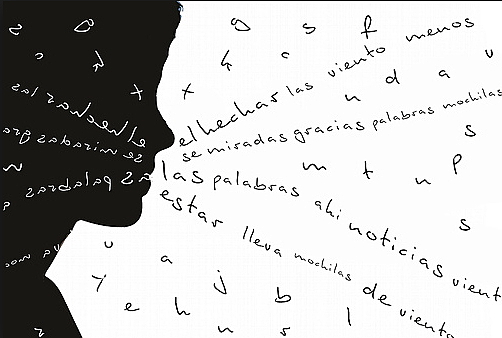 g s f
k c s el hechar las viento menos
x n d a u
se miradas gracias palabras mochilas
s
m t n p
las palabras ahi noticias vient
s
estar lleva mochilas de viento
u a
y e h j b
n r l